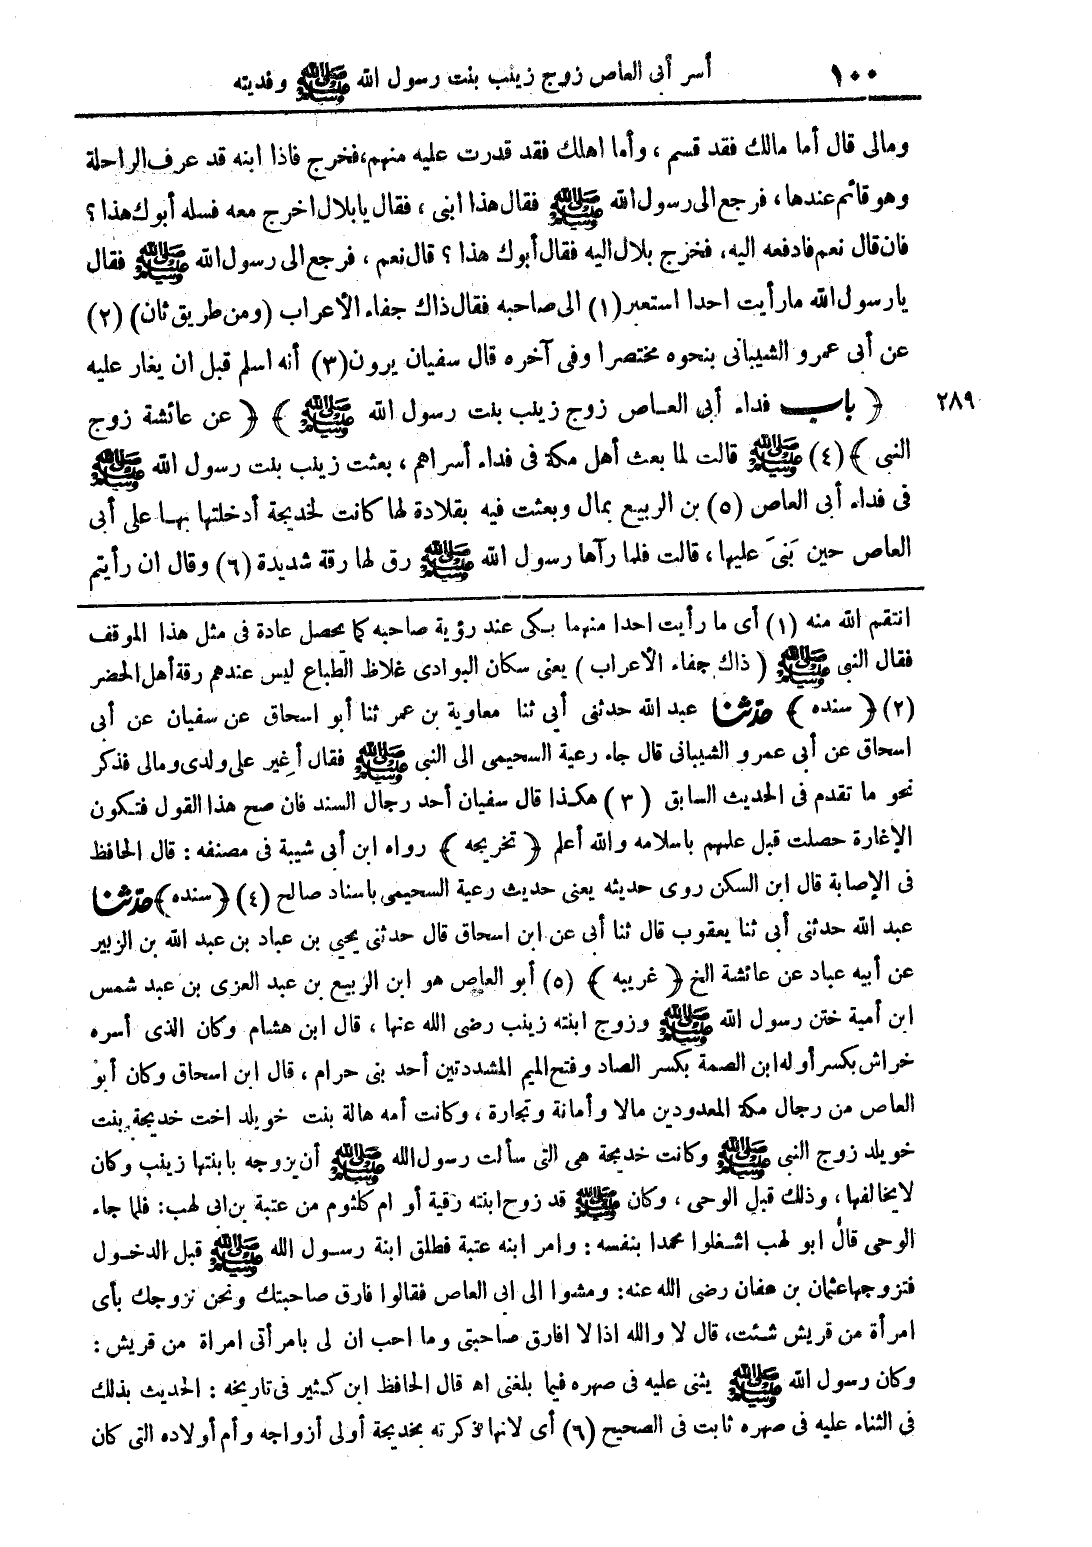 ١٠٠ أسر أبى العاص زوج زينب بنت رسول الله ﷺ وفديته
ومالى قال أما مالك فقد قسم ، وأما اهلك فقد قدرت عليه منهم،فخرج فاذا ابنه قد عرف الراحلة
وهو قائم عندها ، فرجع الى رسول الله ﷺ فقال هذا ابنى ، فقال يا بلال اخرج معه فسله أبوك هذا ؟
فان قال نعم فادفعه اليه، فخزج بلال اليه فقال أبوك هذا ؟ قال نعم ، فرجع الى رسول الله ﷺ فقال
يا رسول الله ما رأيت احدا استعبر (١) الى صاحبه فقال ذاك جفاء الأعراب (ومن طريق ثان) (٢)
عن أبى عمرو الشيبانى بنحوه مختصرا وفى آخره قال سفيان يرون (٣) أنه اسلم قبل ان يغار عليه
٢٨٩ ﴿ باب فداء أبى العاص زوج زينب بنت رسول الله ﷺ ﴾ ﴿ عن عائشة زوج
النبى ﴾ (٤) ﷺ قالت لما بعث أهل مكة فى فداء أسراهم ، بعثت زينب بنت رسول الله ﷺ
فى فداء أبى العاص (٥) بن الربيع بمال وبعثت فيه بقلادة لها كانت لخديجة أدخلتها بها على أبى
العاص حين بَنىَ عليها ، قالت فلما رآها رسول الله ﷺ رق لها رقة شديدة (٦) وقال ان رأيتم
انتقم الله منه (١) أى ما رأيت احدا منهما بكى عند رؤية صاحبه كما يحصل عادة فى مثل هذا الموقف
فقال النبى ﷺ ( ذاك جفاء الأعراب ) يعنى سكان البوادى غلاظ الطباع ليس عندهم رقة أهل الحضر
(٢) ﴿ سنده ﴾ حدثنا عبد الله حدثنى أبى ثنا معاوية بن عمر ثنا أبو اسحاق عن سفيان عن أبى
اسحاق عن أبى عمرو الشيبانى قال جاء رعية السحيمى الى النبى ﷺ فقال أغير على ولدى ومالى فذكر
نحو ما تقدم فى الحديث السابق (٣) هكذا قال سفيان أحد رجال السند فان صح هذا القول فتكون
الإغارة حصلت قبل علمهم باسلامه والله أعلم ﴿ تخريجه ﴾ رواه ابن أبى شيبة فى مصنفه : قال الحافظ
فى الإصابة قال ابن السكن روى حديثه يعنى حديث رعية السحيمى باسناد صالح (٤) ﴿سنده﴾ حدثنا
عبد الله حدثنى أبى ثنا يعقوب قال ثنا أبى عن ابن اسحاق قال حدثنى يحيى بن عباد بن عبد الله بن الزبير
عن أبيه عباد عن عائشة الخ ﴿ غريبه ﴾ (٥) أبو العاص هو ابن الربيع بن عبد العزى بن عبد شمس
ابن أمية ختن رسول الله ﷺ وزوج ابنته زينب رضى الله عنها ، قال ابن هشام وكان الذى أسره
خراش بكسر أوله ابن الصمة بكسر الصاد وفتح الميم المشددتين أحد بنى حرام ، قال ابن اسحاق وكان أبو
العاص من رجال مكة المعدودين مالا وأمانة وتجارة ، وكانت أمه هالة بنت خويلد اخت خديجة بنت
خويلد زوج النبى ﷺ وكانت خديجة هى التى سألت رسول الله ﷺ أن يزوجه بابنتها زينب وكان
لا يخالفها ، وذلك قبل الوحى ، وكان ﷺ قد زوج ابنته رقية أو ام كلثوم من عتبة بن ابى لهب: فلما جاء
الوحى قال ابو لهب اشغلوا محمدا بنفسه : وامر ابنه عتبة فطلق ابنة رسول الله ﷺ قبل الدخول
فتزوجها عثمان بن عفان رضى الله عنه: ومشوا الى ابى العاص فقالوا فارق صاحبتك ونحن نزوجك بأى
امرأة من قريش شئت، قال لا والله اذا لا افارق صاحبتى وما احب ان لى بامرأتى امراة من قريش :
وكان رسول الله ﷺ يثنى عليه فى صهره فيما بلغنى اه قال الحافظ ابن كثير فى تاريخه : الحديث بذلك
فى الثناء عليه فى صهره ثابت فى الصحيح (٦) أى لانها ذكرته بخديجة أولى أزواجه وأم أولاده التى كان